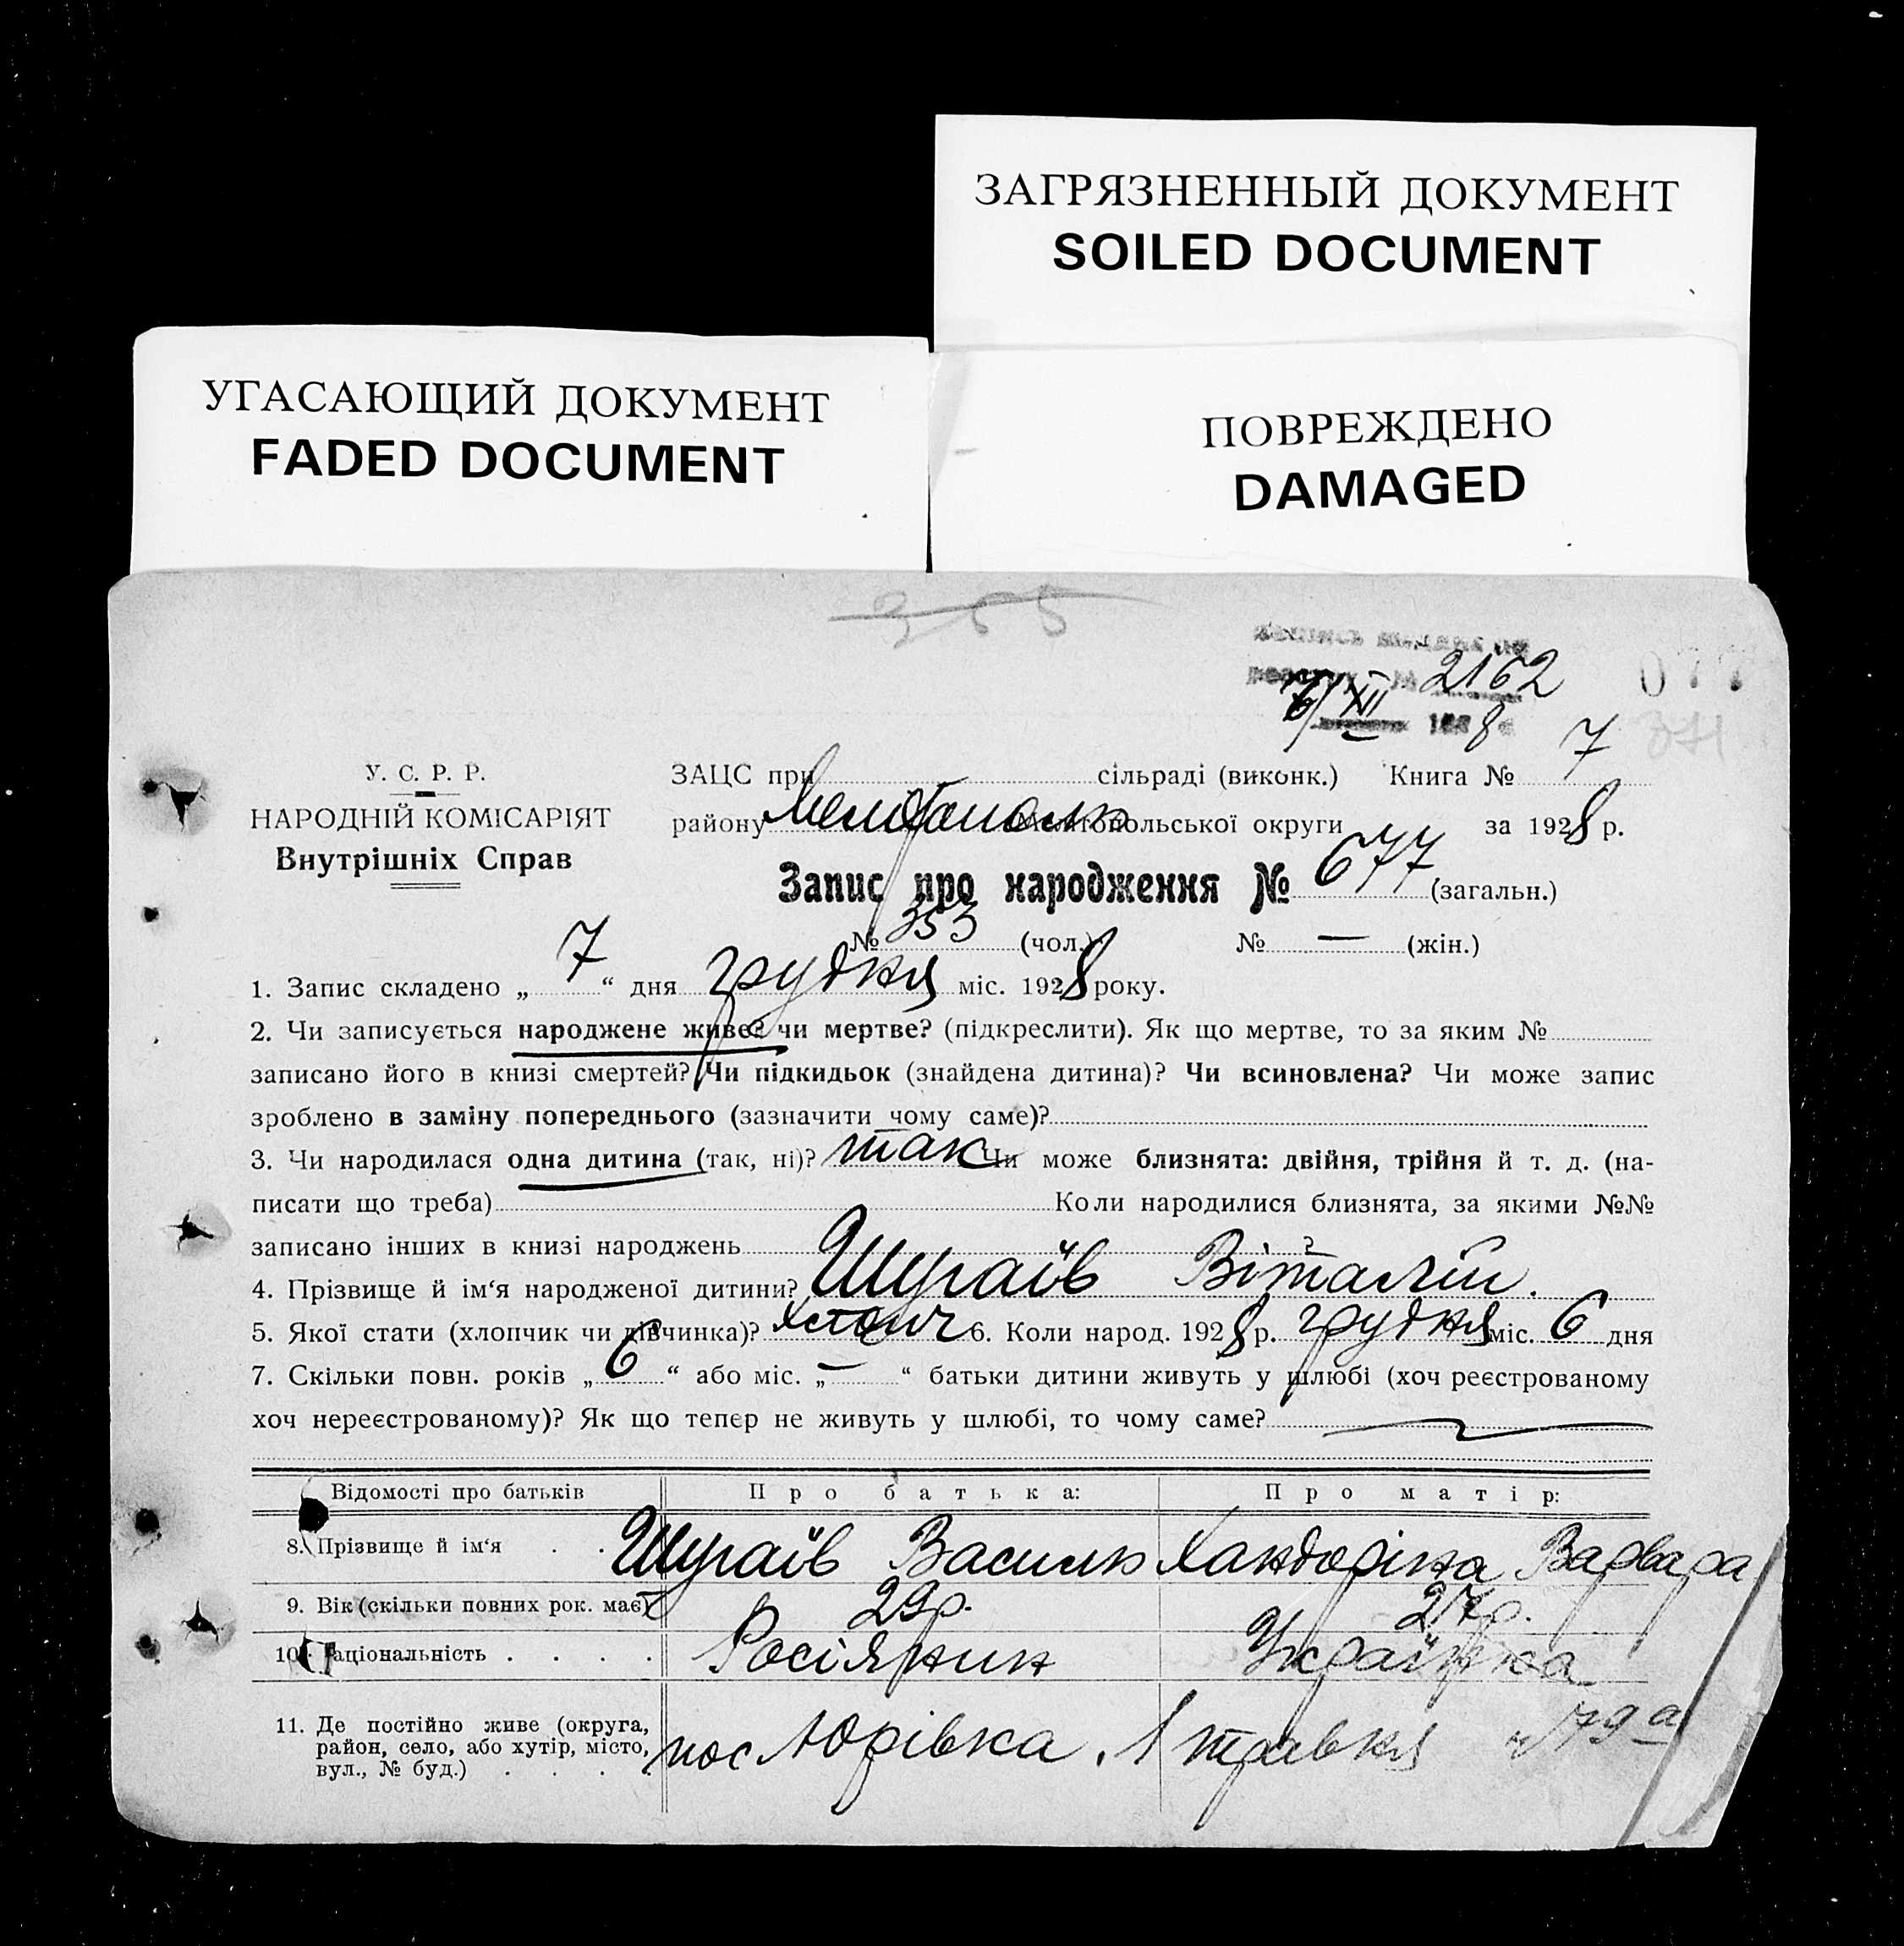 ЗАГРЯЗНЕННЫЙ ДОКУМЕНТ
SOILED DOCUMENT
УГАСАЮЩИЙ ДОКУМЕНТ
FADED DOCUMENT
ПОВРЕЖДЕНО
DAMAGED
2162
6/XII 1928
077
У. С. Р. Р.
НАРОДНІЙ КОМІСАРІЯТ
Внутрішніх Справ
ЗАЦС при сільраді (виконк.) Книга № 7
району Мелітополь Мелітопольської округи за 1928 р.
Запис про народження № 677 (загальн.)
№ 353 (чол.) № — (жін.)
1. Запис складено „ 7 “ дня грудня міс. 1928 року.
2. Чи записується народжене живе? чи мертве? (підкреслити). Як що мертве, то за яким №
записано його в книзі смертей? Чи підкидьок (знайдена дитина)? Чи всиновлена? Чи може запис
зроблено в заміну попереднього (зазначити чому саме)?
3. Чи народилася одна дитина (так, ні)? так Чи може близнята: двійня, трійня й т. д. (на-
писати що треба) Коли народилися близнята, за якими №№
записано інших в книзі народжень ?
4. Прізвище й ім‘я народженої дитини? Шугаїв Віталій.
5. Якої стати (хлопчик чи дівчинка)? хлопч 6. Коли народ. 1928 р. грудня міс. 6 дня
7. Скільки повн. років „ 6 “ або міс. „ — “ батьки дитини живуть у шлюбі (хоч реєстрованому
хоч нереєстрованому)? Як що тепер не живуть у шлюбі, то чому саме?
Відомості про батьків Про батька: Про матір:
8. Прізвище й ім‘я . . Шугаїв Василь Хандоріна Варвара
9. Вік (скільки повних рок. має) 29р. 27р.
10. Національність . . . . Росіянин Українка
11. Де постійно живе (округа,
район, село, або хутір, місто,
вул., № буд.) . . . .
пос Юрівка, 1 травня № 79а